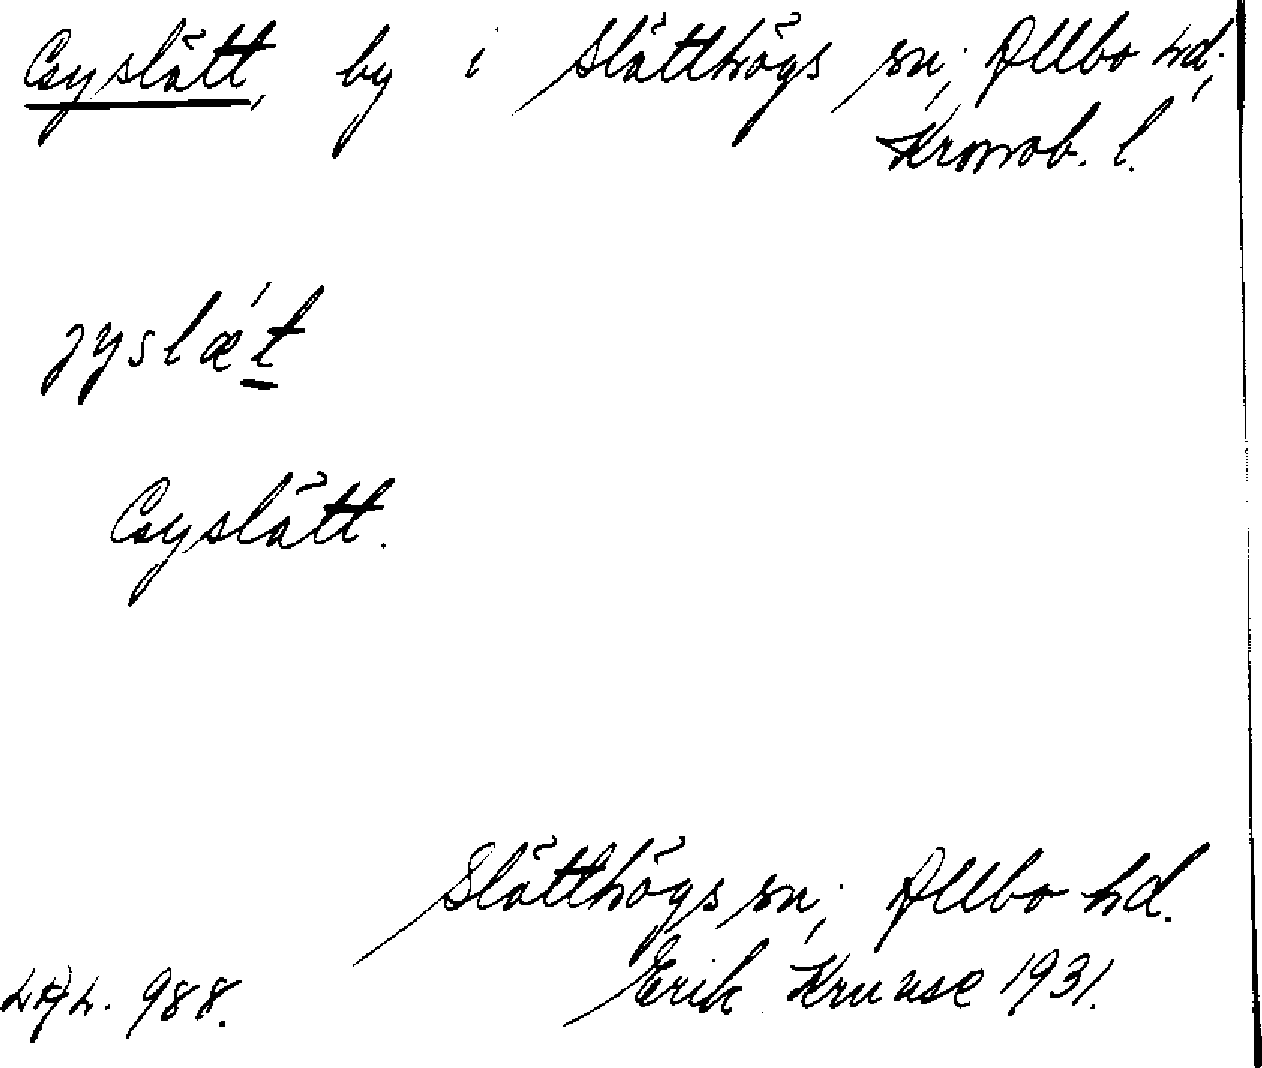 Gyslätt, by i Slätthögs sn; Allbo hd;
Kronob. l.
jyslæ´t
Gyslätt.
Slätthögs sn; Allbo hd.
Erik Kruuse 1931.
LAL. 988.